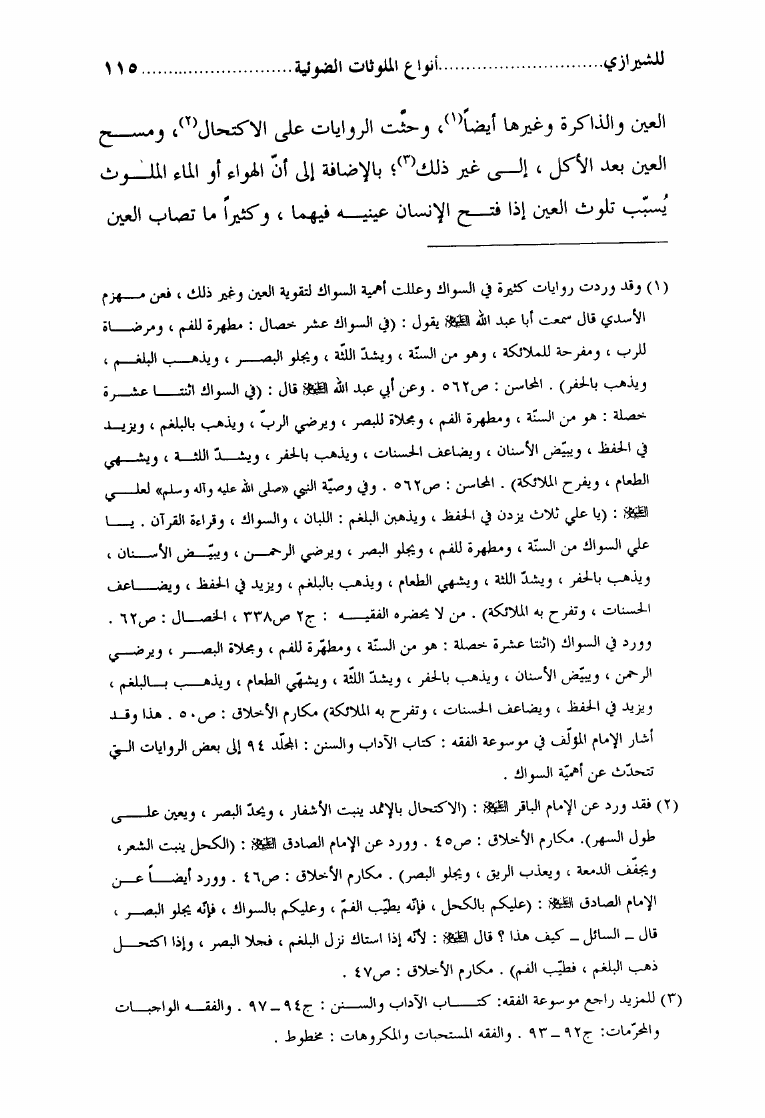 للشيرازي............................أنواع الملوثات الضوئية............................١١٥
العين والذاكرة وغيرها أيضاً(١)، وحثّت الروايات على الاكتحال(٢)، ومسح
العين بعد الأكل ، إلى غير ذلك(٣)؛ بالإضافة إلى أنّ الهواء أو الماء الملوث
يُسبّب تلوث العين إذا فتح الإنسان عينيه فيهما ، وكثيراً ما تصاب العين
(١) وقد وردت روايات كثيرة في السواك وعللت أهمية السواك لتقوية العين وغير ذلك ، فعن مهزم
الأسدي قال سمعت أبا عبد الله عليه السلام يقول : (في السواك عشر خصال : مطهرة للفم ، ومرضاة
للرب ، ومفرحة للملائكة ، وهو من السنّة ، ويشدّ اللثّة ، ويجلو البصر ، ويذهب البلغم ،
ويذهب بالحفر) . المحاسن : ص٥٦٢ . وعن أبي عبد الله عليه السلام قال : (في السواك اثنتا عشرة
خصلة : هو من السنّة ، ومطهرة الفم ، ومجلاة للبصر ، ويرضي الربّ ، ويذهب بالبلغم ، ويزيد
في الحفظ ، ويبيّض الأسنان ، ويضاعف الحسنات ، ويذهب بالحفر ، ويشدّ اللثة ، ويشهي
الطعام ، ويفرح الملائكة) . المحاسن : ص٥٦٢ . وفي وصيّة النبي «صلى الله عليه وآله وسلم» لعلي
عليه السلام : (يا علي ثلاث يزدن في الحفظ ، ويذهبن البلغم : اللبان ، والسواك ، وقراءة القرآن . يا
علي السواك من السنّة ، ومطهرة للفم ، ويجلو البصر ، ويرضي الرحمن ، ويبيّض الأسنان ،
ويذهب بالحفر ، ويشدّ اللثة ، ويشهي الطعام ، ويذهب بالبلغم ، ويزيد في الحفظ ، ويضاعف
الحسنات ، وتفرح به الملائكة) . من لا يحضره الفقيه : ج٢ ص٣٣٨ ، الخصال : ص٦٢ .
وورد في السواك (اثنتا عشرة خصلة : هو من السنّة ، ومطهّرة للفم ، ومجلاة البصر ، ويرضي
الرحمن ، ويبيّض الأسنان ، ويذهب بالحفر ، ويشدّ اللثّة ، ويشهّي الطعام ، ويذهب بالبلغم ،
ويزيد في الحفظ ، ويضاعف الحسنات ، وتفرح به الملائكة) مكارم الأخلاق : ص٥٠ . هذا وقد
أشار الإمام المؤلّف في موسوعة الفقه : كتاب الآداب والسنن : المجلّد ٩٤ إلى بعض الروايات التي
تتحدّث عن أهميّة السواك .
(٢) فقد ورد عن الإمام الباقر عليه السلام : (الاكتحال بالإثمد ينبت الأشفار ، ويحدّ البصر ، ويعين على
طول السهر). مكارم الأخلاق : ص٤٥ . وورد عن الإمام الصادق عليه السلام : (الكحل ينبت الشعر،
ويجفّف الدمعة ، ويعذب الريق ، ويجلو البصر) . مكارم الأخلاق : ص٤٦ . وورد أيضاً عن
الإمام الصادق عليه السلام : (عليكم بالكحل ، فإنّه يطيّب الفمّ ، وعليكم بالسواك ، فإنّه يجلو البصر ،
قال ـ السائل ـ كيف هذا ؟ قال عليه السلام : لأنّه إذا استاك نزل البلغم ، فجلا البصر ، وإذا اكتحل
ذهب البلغم ، فطيّب الفم) . مكارم الأخلاق : ص٤٧ .
(٣) للمزيد راجع موسوعة الفقه: كتاب الآداب والسنن : ج٩٤ـ ٩٧ . والفقه الواجبات
والمحرّمات: ج٩٢ـ ٩٣ . والفقه المستحبات والمكروهات : مخطوط .